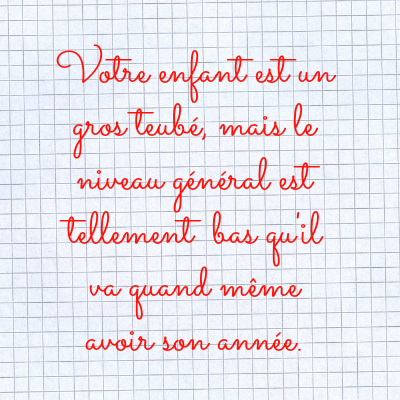 Votre enfant est un
gros teubé, mais le
niveau général est
tellement bas qu'il
va quand même
avoir son année.